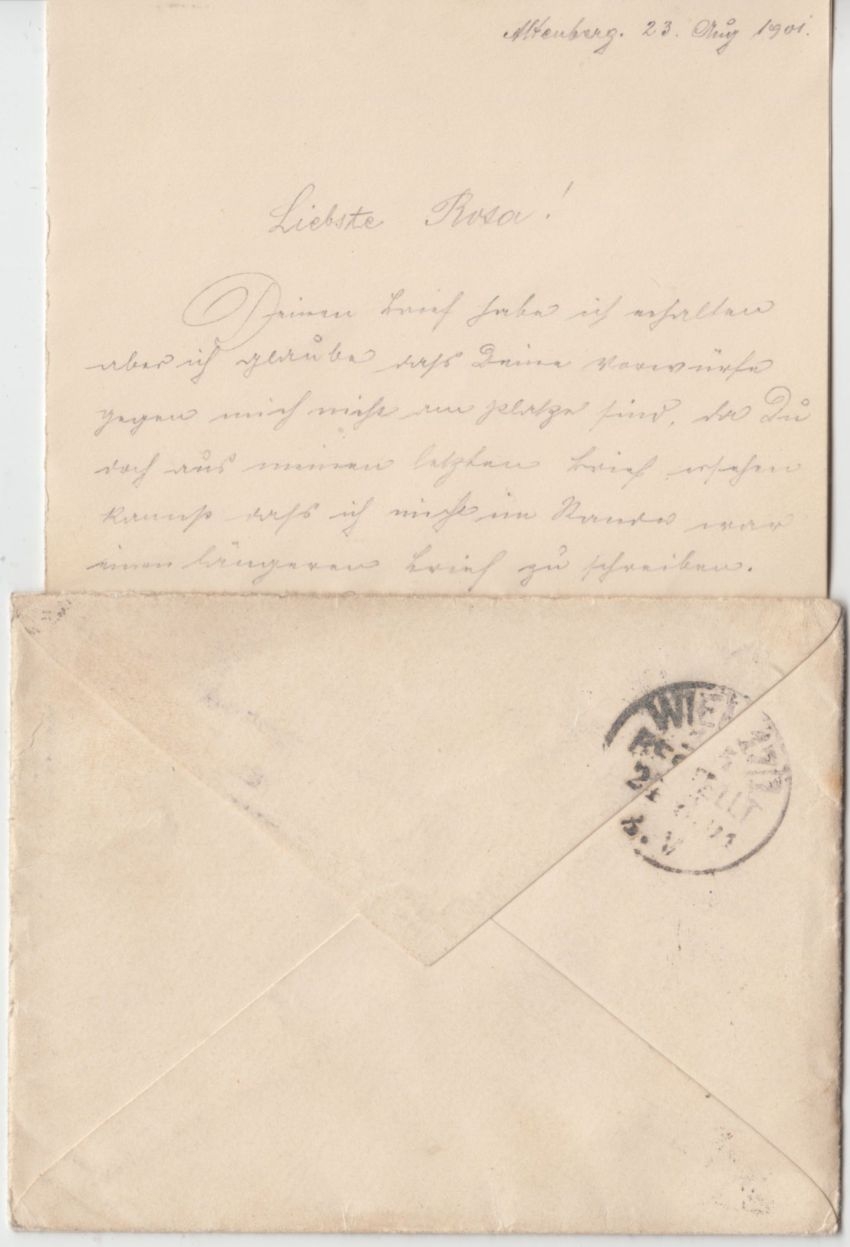 Altenberg. 23. Aug 1901.
Liebste Rosa!
Deinen Brief habe ich erhalten
aber ich glaube dass Deine Vorwürfe
gegen mich nicht am Platze sind, da Du
doch aus meinen letzten Brief ersehen
kannst dass ich nicht im Stande war
einen längeren Brief zu schreiben.
WIEN